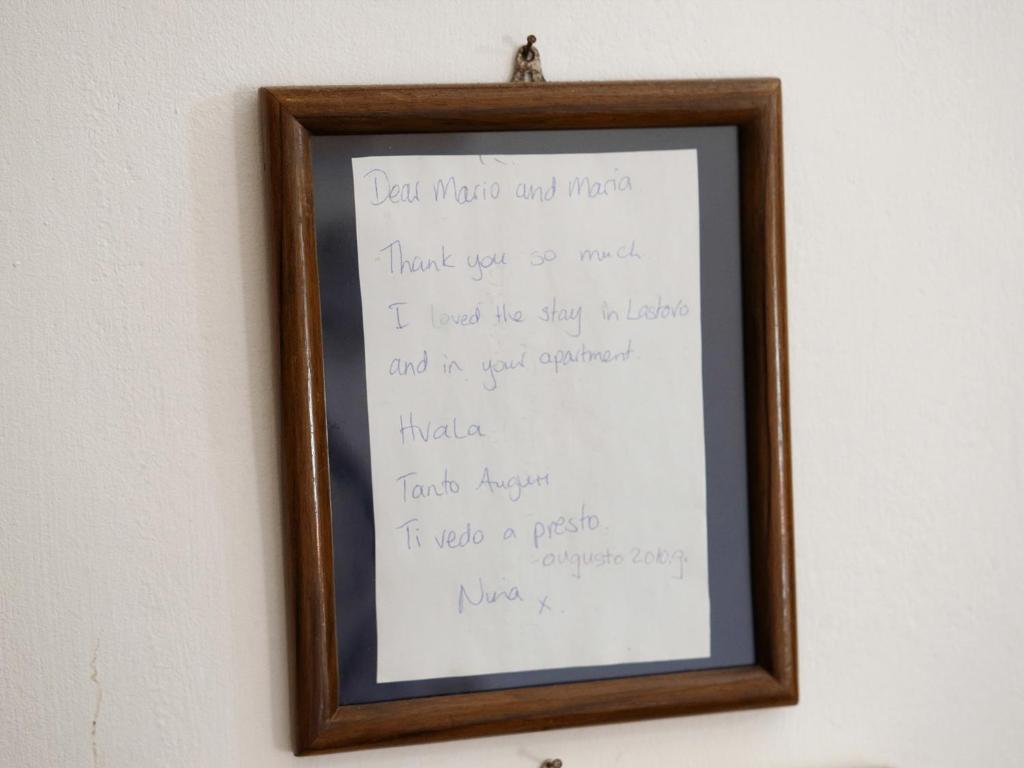 Dear Mario and Maria
Thank you so much
I loved the stay in Lastovo
and in your apartment.
Hvala
Tanto Auguri
Ti vedo a presto.
augusto 2010.g.
x.